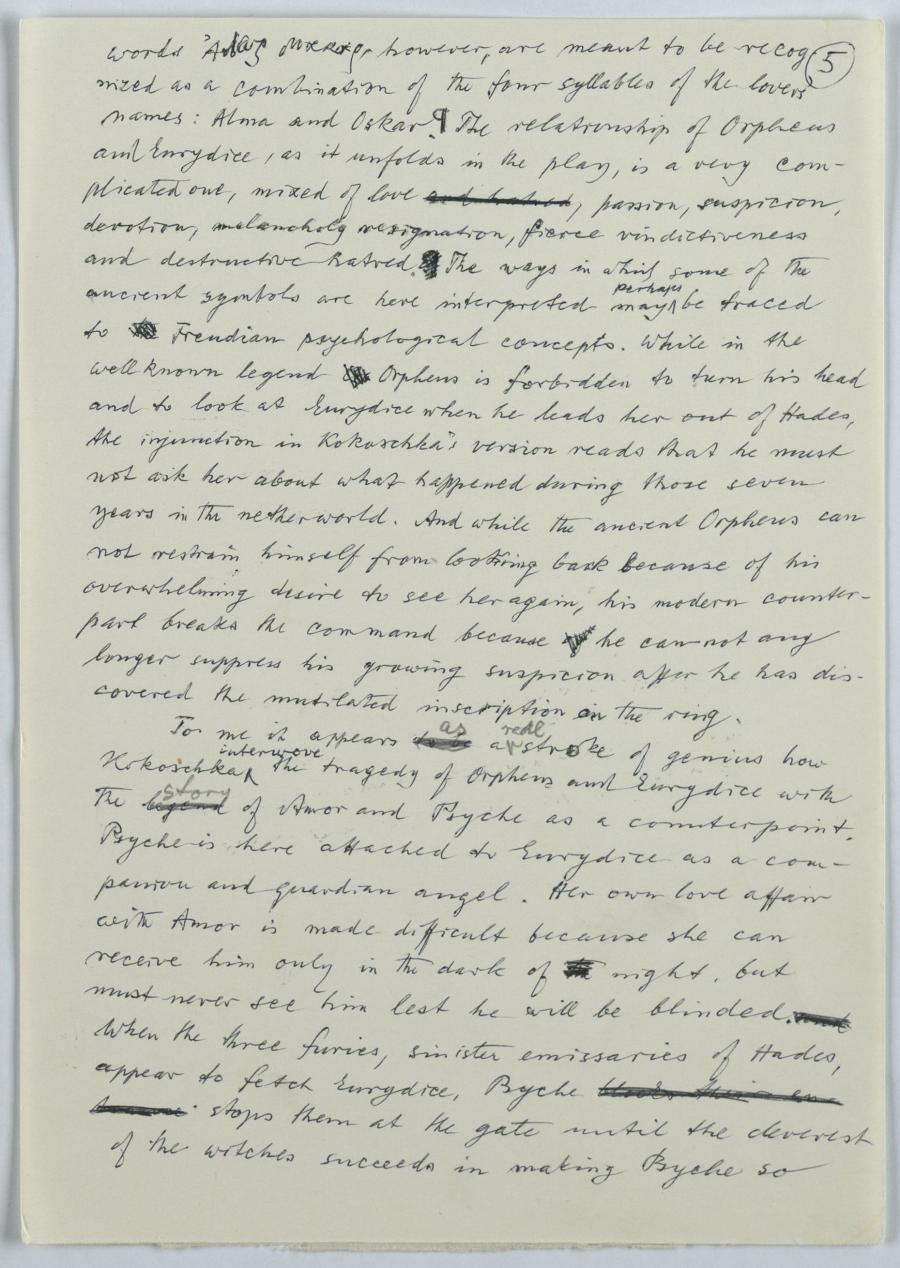 5
words however, are meant to be recog
nized as a combination of the four syllables of the lovers'
names: Alma and Oskar. ¶ The relationship of Orpheus
and Eurydice, as it unfolds in the play, is a very com-
plicated one, mixed of love and hatred, passion, suspicion,
devotion, melancholy resignation, fierce vindictiveness
and destructive hatred. The ways in which some of the
perhaps
ancient symbols are here interpreted may be traced
to Freudian psychological concepts. While in the
well known legend Orpheus is forbidden to turn his head
and to look at Eurydice when he leads her out of Hades,
the injunction in Kokoschka's version reads that he must
not ask her about what happened during those seven
years in the netherworld. And while the ancient Orpheus can
not restrain himself from looking back because of his
overwhelming desire to see her again, his modern counter-
part breaks the command because he can not any
longer suppress his growing suspicion after he has dis-
covered the mutilated inscription in the ring.
as real
To me it appears to be a stroke of genius how
interwove
Kokoschka the tragedy of Orpheus and Eurydice with
story
the legend of Amor and Psyche as a counterpoint.
Psyche is here attached to Eurydice as a com-
panion and guardian angel. Her own love affair
with Amor is made difficult because she can
receive him only in the dark of night, but
must never see him lest he will be blinded.
When the three furies, sinister emissaries of Hades,
appear to fetch Eurydice, Psyche
stops them at the gate until the cleverest
of the witches succeeds in making Psyche so